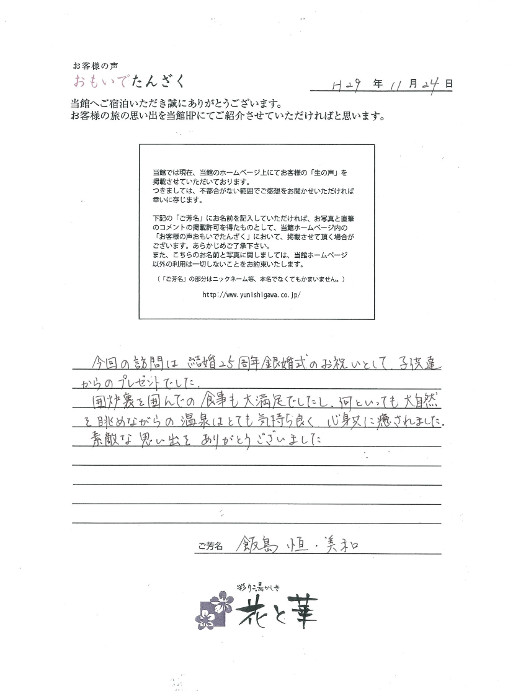 お客様の声
おもいでたんざく
H29 年 11 月 24 日
当館へご宿泊いただき誠にありがとうございます。
お客様の旅の思い出を当館HPにてご紹介させていただければと思います。
当館では現在、当館のホームページ上にてお客様の「生の声」を
掲載させていただいております。
つきましては、不都合がない範囲でご感想をお聞かせいただければ
幸いに存じます。
下記の「ご芳名」にお名前を記入していただければ、お写真と直筆
のコメントの掲載許可を得たものとして、当館ホームページ内の
「お客様の声おもいでたんざく」において、掲載させて頂く場合が
ございます。あらかじめご了承下さい。
また、こちらのお名前と写真に関しましては、当館ホームページ
以外の利用は一切しないことをお約束いたします。
（「ご芳名」の部分はニックネーム等、本名でなくてもかまいません。）
http://www.yunishigawa.co.jp/
今回の訪問は 結婚25周年銀婚式のお祝いとして 子供達
からのプレゼントでした。
囲炉裏を囲んでの食事も大満足でしたし、何といっても大自然
を眺めながらの温泉はとても気持ち良く 心身共に癒されました。
素敵な思い出を ありがとうございました
ご芳名 飯島 恒・美和
彩り湯かしき
花と華